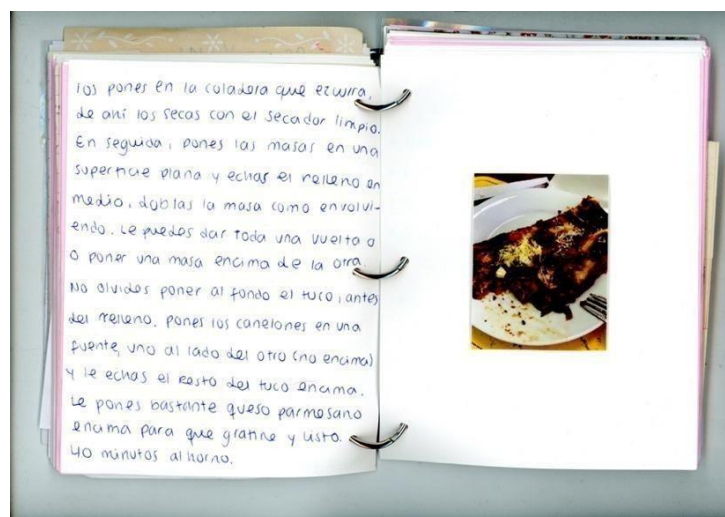 los pones en la coladera que ezurra,
de ahí los secas con el secador limpio.
En seguida, pones las masas en una
superficie plana y echas el relleno en
medio, doblas la masa como envolvi-
endo. Le puedes dar toda una vuelta o
o poner una masa encima de la otra.
No olvides poner al fondo el tuco, antes
del relleno. Pones los canelones en una
fuente, uno al lado del otro (no encima)
y le echas el resto del tuco encima.
Le pones bastante queso parmesano
encima para que gratine y listo.
40 minutos al horno.